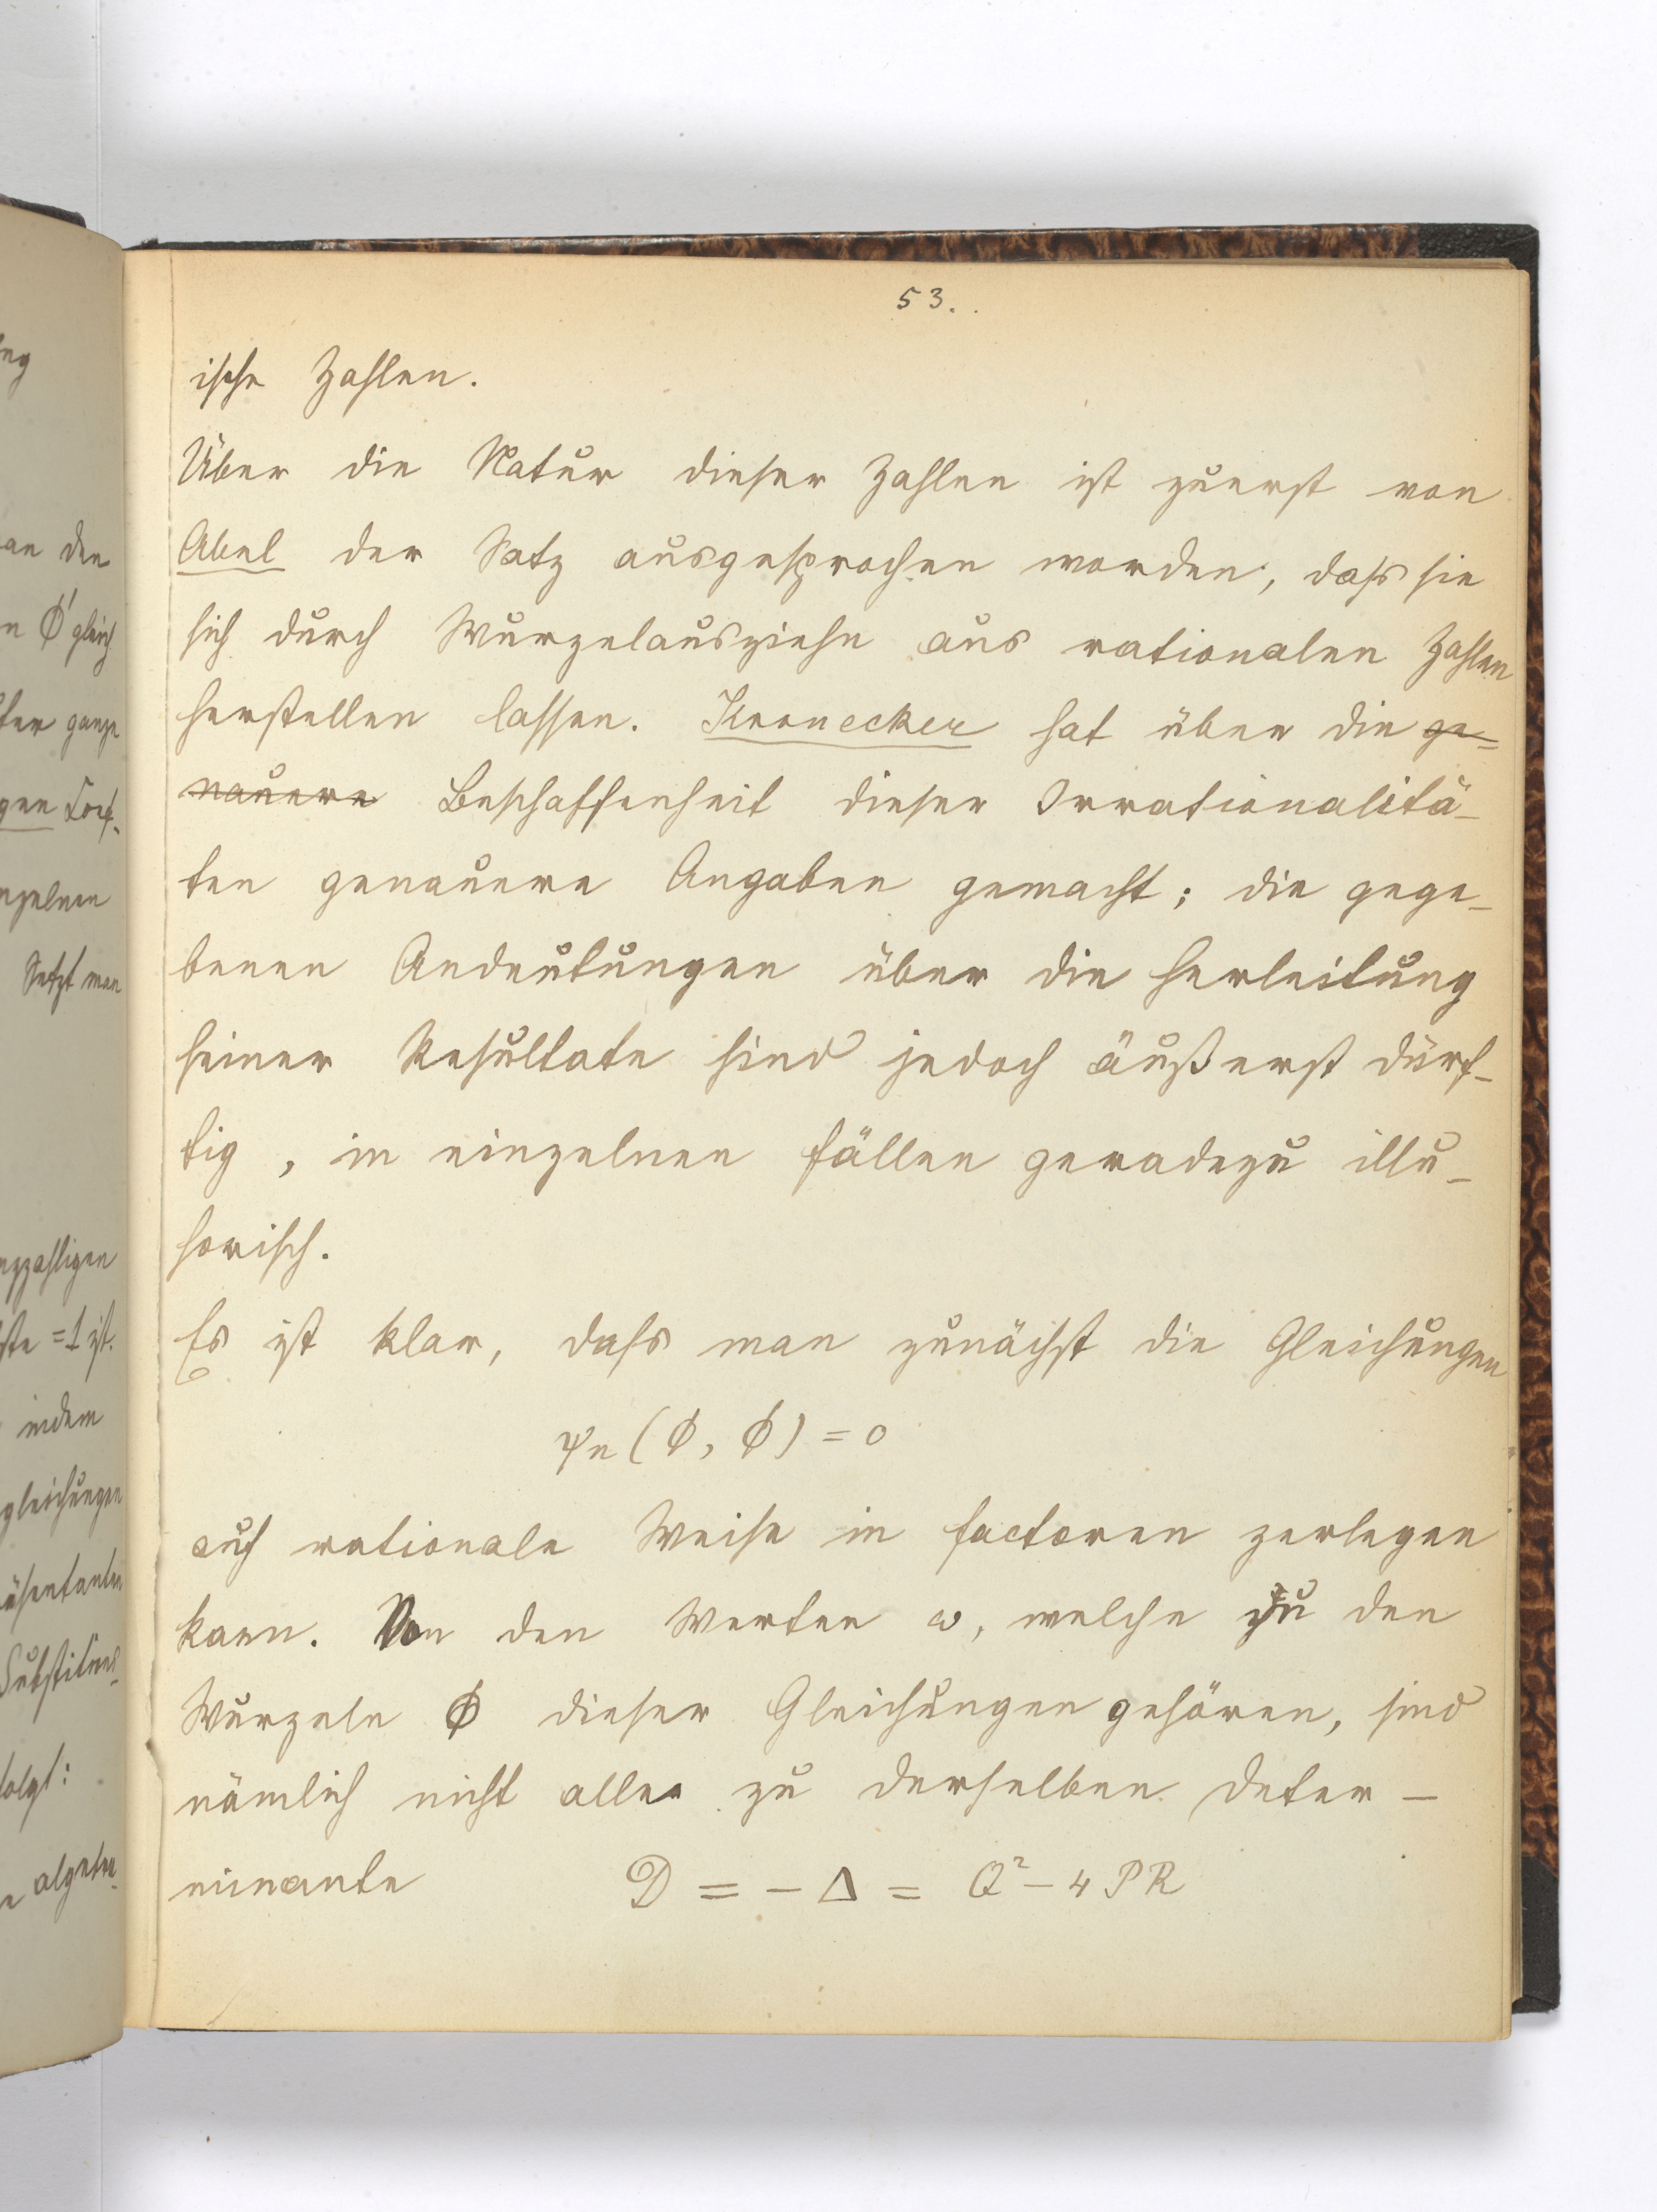 53.
ische Zahlen.
Über die Natur dieser Zahlen ist zuerst von
Abel der Satz ausgesprochen worden, dass sie
sich durch Wurzelausziehn aus rationalen Zahlen
herstellen lassen. Kronecker hat über die ge=
nauere Beschaffenheit dieser Irrationalitä-
ten genauere Angaben gemacht; die gege-
benen Andeutungen über die Herleitung
seiner Resultate sind jedoch äußerst dürf-
tig, in einzelnen Fällen geradezu illu-
sorisch.
Es ist klar, dass man zunächst die Gleichungen
ψn (ϕ, ϕ) = 0
auf rationale Weise in Factoren zerlegen
kann. Von den Werten ω, welche zu den
Wurzeln ϕ dieser Gleichungen gehören, sind
nämlich nicht alle zu derselben Deter-
minante D = - Δ = Q² - 4 P R
an den
n ϕ' gleich
ter ganze
gen Coef-
nzelnen
Setzt man
nzzahligen
ste = 1 ist.
indem
gleichungen
äsentanten
Substitu
folgt:
algebra-